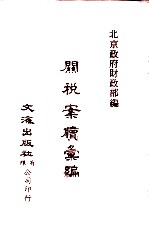 北京政府財政部編
關税案牘彙編
文海出版社有限公司印行